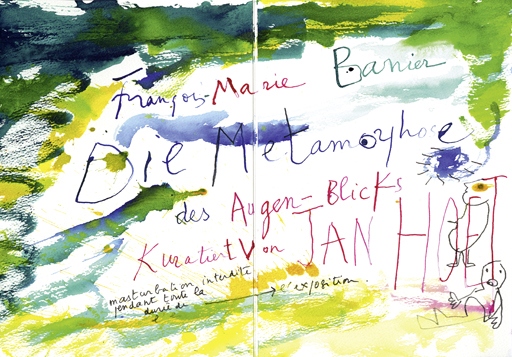 François-Marie Banier
Die Metamorphose
des Augen-Blicks
Kuratiert von JAN HOET
masturbation interdite
pendant toute la
durée de → l'exposition.